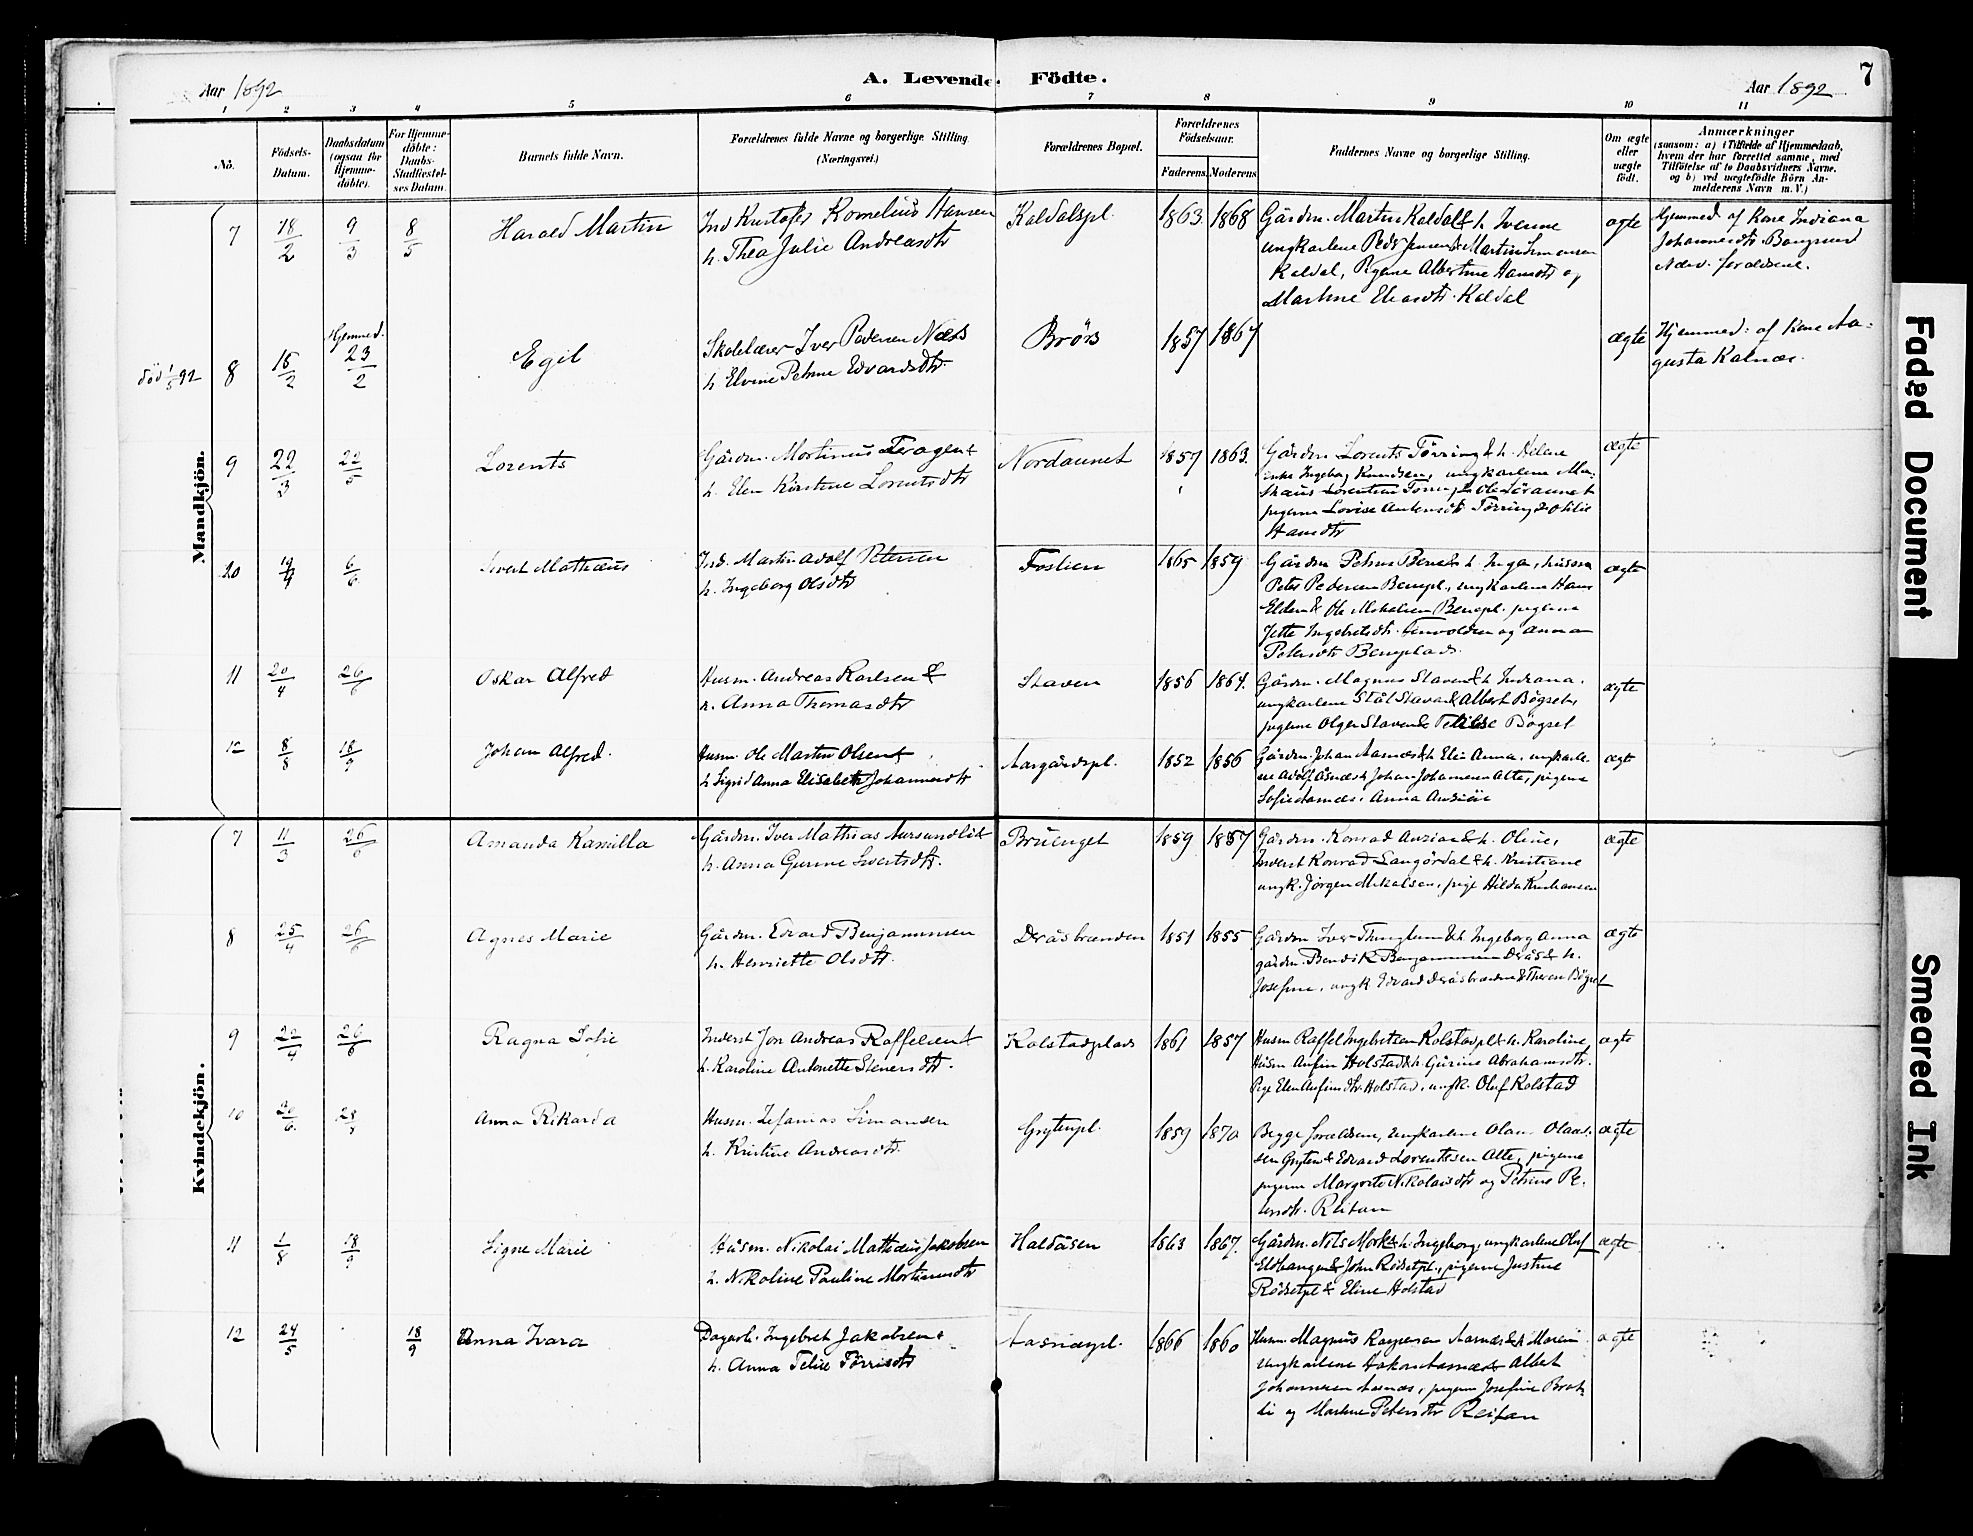 Aar 1892
A. Levende Födte.
Aar 1892
7
1 2 3 4 5 6 7 8 9 10 11
No.
Födsels-
Datum.
Daabsdatum
(ogsaa for
Hjemme-
döbte).
For Hjemme-
döbte:
Daabs-
Stadfæstel-
ses Datum.
Barnets fulde Navn.
Forældrenes fulde Navne og borgerlige Stilling.
(Næringsvei.)
Forældrenes Bopæl.
Forældrenes
Födselsaar.
Faderens. Moderens
Faddernes Navne og borgerlige Stilling.
Om ægte
eller
uægte
födt.
Anmærkninger
(saasom: a) i Tilfælde af Hjemmedaab,
hvem der har forrettet samme, med
Tilföielse af to Daabsvidners Navne.
og b) ved uægtefödte Börn An-
melderens Navn m. V.)
Mandkjön.
7 18/2 9/3 8/5 Harald Martin
Ind Kristofer Kornelius Hansen
h. Thea Julie Andreasdtr
Kaldalspl. 1863 1868
Gårdm. Martin Kaldal & h.
ungkarlene Peder Jensen & Martin Simonsen
Kaldal, Pigerne Albertine Hansdtr og
Martine Eliasdtr Kaldal
ægte
Hjemmed. af Kone Indiana
Johannesdtr Bangsund
Nærv. forældrene.
død 1/5 92
8 15/2 Hjemmed. 23/2 Egil
Skolelærer Iver Pedersen Næss
h. Elvine Petrine Edvardsdtr.
Brørs 1857 1867
ægte
Hjemmed: af Kone Au-
gusta Kalnæs.
9 22/3 22/5 Lorents
Gårdm. Mortinus &
h. Elen Kirstine Lorentsdtr
Nordaunet 1857 1863.
Gårdm Lorents Tørring & h. Helene
enke Ingeborg Knudsen, ungkarlene
Lorentsen Tørring & Ole
pigerne Lovise Antonsdtr Tørring & Otilie
Hansdtr
ægte
10 19/4 6/6 Sivert Mathæus
Ind. Martin Adolf Petersen
h. Ingeborg Olsdtr
Foslien 1865 1859
Gårdm Petrus & h. Inga, husm
Peter Pedersen Benpl., ungkarlene Hans
Elden & Ole Mikalsen Benepl. pigerne
Jette Ingebretsdtr. og Anna
Petersdtr Beneplads.
ægte
11 20/4 26/6 Oskar Alfred
Husm. Andreas Karlsen &
h. Anna Thomasdtr
Staven 1856 1864.
Gårdm. Magnus Staven & h Indiana.
ungkarlene Ståle Staven & Albert Bøgset,
pigerne Olga Staven & Bøgset
ægte
12 8/8 18/9 Johan Alfred.
Husm Ole Martin Olsen &
h Sigrid Anna Elisabeth Johannesdtr
Aargårdspl. 1852 1856
Gårdm. Johan Aasnæs & h Elen Anna, ungkarle-
ne Adolf Åsnæs & Johan Johannesen Alte, pigerne
Sofie Aasnæs, Anna
ægt
Kvindekjön.
7 11/3 26/6 Amanda Kamilla
Gårdm. Iver Mathias Aursundlid
h. Anna Gurine Sivertsdtr.
Bruenget 1859 1857
Gårdm. Konrad & h. Oline,
Inderst Konrad Langørdal & h. Kristiane
ungk. Jørgen Mikalsen, pige Hilda Kristiansen
ægte
8 25/4 26/6 Agnes Marie
Gårdm. Edvard Benjaminsen
h. Henriette Olsdtr.
Deråsbrænden 1851 1855
Gårdm Iver & h Ingeborg Anna
gårdm. Bendik Benjaminsen Derås & h.
Josefine, ungk Edvard Deråsbrænden & Bøgset
ægte
9 20/4 26/6 Ragna Sofie
Inderst Jon Andreas Raffelsen &
h. Karoline Antonette Stenersdtr.
Kolstadplads 1861 1857
Husm Raffel Ingebretsen Kolstadpl & h. Karoline,
Husm Anfin Holstad & h Gurine Abrahamsdtr.
Pige Elen Anfinsdtr. Holstad, ungk. Oluf Kolstad
ægte
10 20/6 Anna Rikarda
Husm. Zefanias Simonsen
h. Kristine Andreasdtr.
Grytenpl. 1859 1870
Begge forældrene, Ungkarlene Olaus Olaus-
sen Gryten & Edvard Lorentssen Alte, pigerne
pigerne Margrete Nikolaisdtr og Petrine Pe-
tersdtr. Reitan
ægte
11 1/8 18/9 Signe Marie
Husm. Nikolai Mathæus Jakobsen
h. Nikoline Pauline Mortinusdtr
Haldåsen 1863 1867.
Gårdm. Nils Mork & h. Ingeborg, ungkarlene Oluf
& John Rødsetpl., pigerne Justine
Rødsetpl & Eline Holstad
ægte
12 24/5 18/9 Anna Ivara
Dagarb. Ingebret Jakobsen &
h. Anna Tørrisdtr
Aasnæspl. 1866 1860
Husm. Magnus Kaspersen Aasnæs & h Maren
Ungkarlene Hakon Aasnæs & Albert
Johannesen Aasnæs, pigerne Josefine
og Martine Petersdtr Reitan
ægte
Faded Document
Smeared Ink